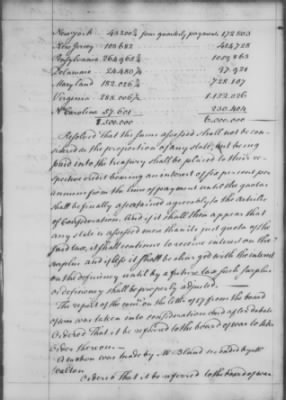 New york 43200¾ four quarterly payments 172803
New Jersey 103682 414728
Pensylvania 264965¾ 1059863
Delaware 24480¼ 97921
Maryland 182.026¾ 728.107
Virginia 288.006½ 1.152.026
N Carolina 57.601 230.404
1.500.000 6.000.000
Resolved that the sums assessed shall not be con
sidered as the proportion of any state, but being
paid into the treasury shall be placed to their re
spective credit bearing an interest of six per cent per
annum from the time of payment until the quotas
shall be finally ascertained agreeably to the Articles
of Confederation. And if it shall then appear that
any state is assessed more than its just quota of the
said tax, it shall continue to receive interest on the
surplus and if less it shall be charged with the interest
on the deficiency until by a future tax such surplus
or deficiency shall be properly adjusted.
The report of the com on the letter of 17 from the board
of war was taken into consideration and after debate
Ordered That it be referred to the board of war to take
order thereon
A motion was made by Mr Bland seconded by Mr
Walton
Ordered that it be referred to the board of war